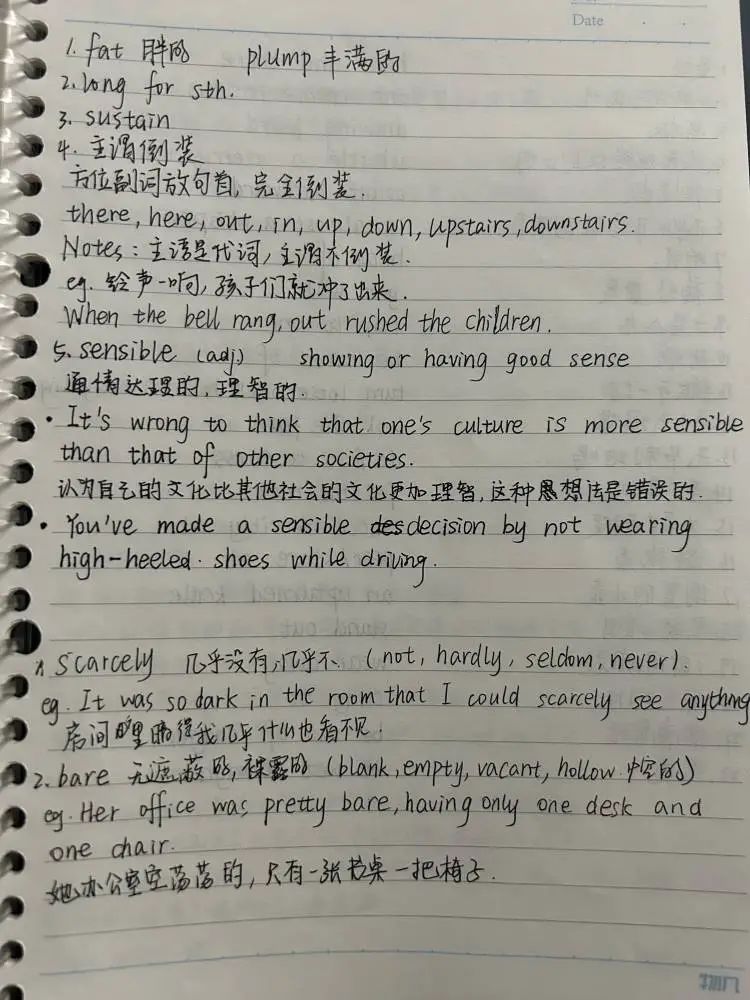 Date
1. fat 胖的 plump 丰满的
2. long for sth.
3. sustain
4. 主谓倒装
方位副词放句首,完全倒装.
there, here, out, in, up, down, upstairs, downstairs.
Notes: 主语是代词,主谓不倒装.
eg. 铃声一响,孩子们就冲了出来.
When the bell rang, out rushed the children.
5. sensible (adj) showing or having good sense
通情达理的,理智的.
· It's wrong to think that one's culture is more sensible
than that of other societies.
认为自己的文化比其他社会的文化更加理智,这种思想法是错误的.
· You've made a sensible decision by not wearing
high-heeled. shoes while driving.
1. scarcely 几乎没有,几乎不 (not, hardly, seldom, never).
eg. It was so dark in the room that I could scarcely see anything
房间里暗得我几乎什么也看不见.
2. bare 无遮蔽的,裸露的 (blank, empty, vacant, hollow 中空的)
eg. Her office was pretty bare, having only one desk and
one chair.
她办公室空荡荡的,只有一张书桌一把椅子.